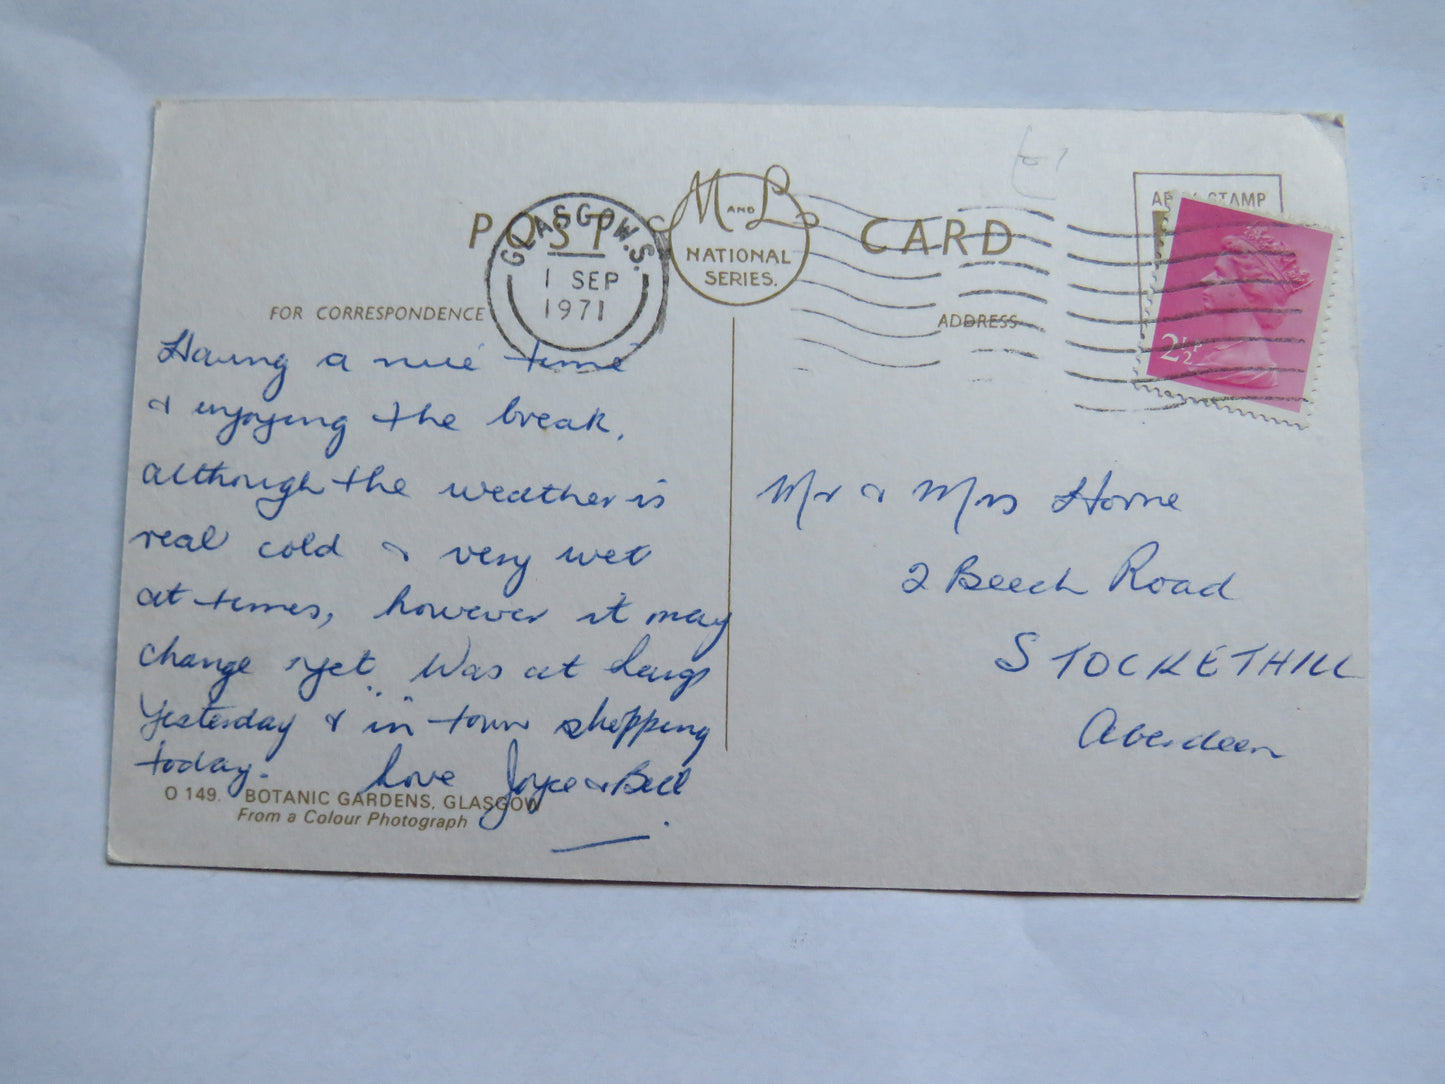 POST CARD
M AND L
NATIONAL
SERIES.
GLASGOW.S.
1 SEP
1971
STAMP
2½P
FOR CORRESPONDENCE
ADDRESS
Having a nice time
& enjoying the break,
although the weather is
real cold & very wet
at times, however it may
change yet. Was at Largs
yesterday & "in" town shopping
today.
Love Joyce & Bill
Mr & Mrs Horne
2 Beech Road
STOCKETHILL
Aberdeen
O 149. BOTANIC GARDENS, GLASGOW
From a Colour Photograph